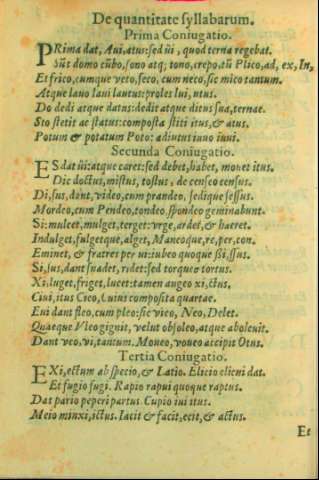 De quantitate syllabarum.
Prima Coniugatio.
PRima dat, Aui, atus: sed ùi, quod terna regebat.
Sūt domo cūbo, sono atq; tono, crepo, cū Plico, ad, ex, In,
Et frico, cumque veto, seco, cum neco, sic mico tantum.
Atque lauo laui lautus: proles lui, utus.
Do dedi atque datus: dedit atque ditus sua, ternae.
Sto stetit ac status: composta stiti itus, & atus.
Potum & potatum Poto: adiutut iuuo iuui.
Secunda Coniugatio.
ESdat ùi: atque caret: sed debet, habet, monet itus.
Dic doctus, mistus, tostus, de censeo census.
Di, sus, dant, video, cum prandeo, sedique sessus.
Mordeo, cum Pendeo, tondeo, spondeo geminabunt.
Si: mulcet, mulget, terget: vrge, ardet, & haeret.
Indulget, fulgetque, alget, Maneoque, re, per, con.
Eminet, & fratres per ui: iubeo quoque ßi, ssus.
Si, sus, dant suadet, ridet: sed torque torius.
Xi: luget, friget, lucet: tamen augeo xi, ctus,
Ciui, itus Cieo, Luius composita quartae.
Eui dant fleo, cum pleo: sic vieo, Neo, Delet.
Quaeque Vleo gignit, velut obsoleo, atque aboleuit.
Dant veo, vi, tantum. Moueo, voueo accipit Otus.
Tertia Coniugatio.
EXi, ectum ab specio, & Latio. Elicio elicui dat.
Et fugio fugi. Rapio rapui quoque raptus.
Dat pario peperi partus. Cupio iui itus.
Meio minxi, ictus. Iacit & facit, ecit, & actus.
Et